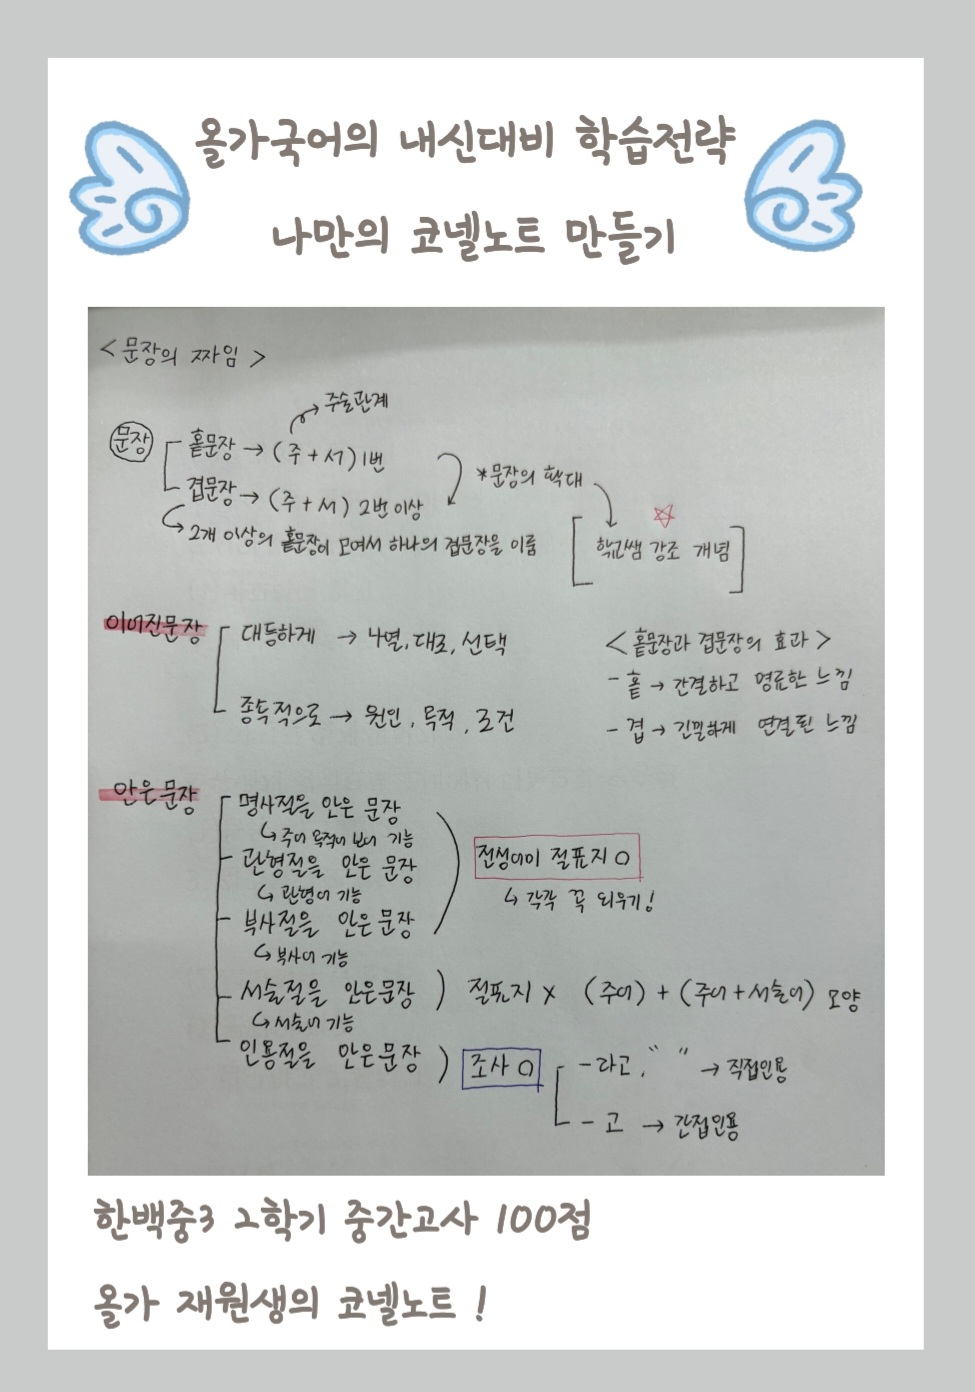 올가국어의 내신대비 학습전략
나만의 코넬노트 만들기
<문장의 짜임>
주술관계
문장
홑문장 → (주+서) 1번
겹문장 → (주+서) 2번 이상
*문장의 확대
2개 이상의 홑문장이 모여서 하나의 겹문장을 이룸
학교쌤 강조 개념
이어진문장
대등하게 → 나열, 대조, 선택
종속적으로 → 원인, 목적, 조건
<홑문장과 겹문장의 효과>
- 홑 → 간결하고 명료한 느낌
- 겹 → 긴밀하게 연결된 느낌
안은문장
명사절을 안은 문장
↳ 주어 목적어 보어 기능
관형절을 안은 문장
↳ 관형어 기능
부사절을 안은 문장
↳ 부사어 기능
전성어미 절표지 O
↳ 각각 꼭 외우기!
서술절을 안은문장 ) 절표지 X (주어) + (주어+서술어) 모양
↳ 서술어 기능
인용절을 안은문장 ) 조사 O
- 라고, " " → 직접인용
- 고 → 간접인용
한백중3 2학기 중간고사 100점
올가 재원생의 코넬노트 !